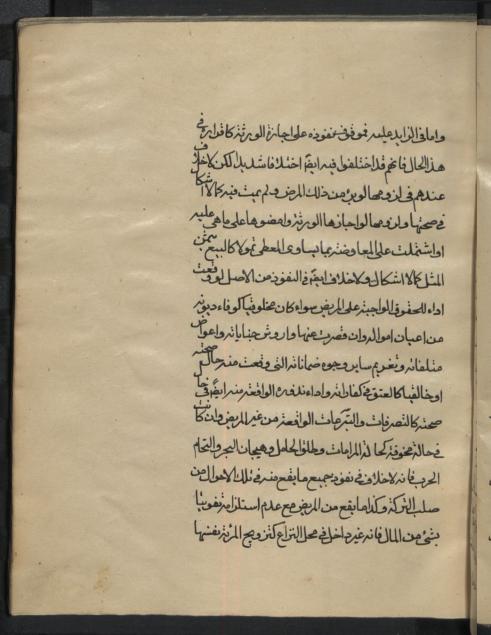 واما في الزايد عليه فموقوف نفوذه على اجازة الورثة كاقراره في
هذا الحال فانهم قد اختلفوا فيه ايضا اختلافا شديدا لكن لا خلاف
عندهم في لزومها لو برئ من ذلك المرض ولم يمت فيه كما لا اشكال
في صحتها ولزومها لو اجازها الورثة وامضوها على ما هي عليه
او اشتملت على المعاوضة بما يساوى المعطى تمولا كالبيع بثمن
المثل كما لا اشكال ولا خلاف ايضا في النفوذ من الاصل لو وقعت
اداء للحقوق الواجبة على المريض سواء كان مخلوقيا كوفاء ديونه
من اعيان امواله وان قصرت عنها واروش جناياته واعواض
متلفاته وتغريم ساير وجوه ضماناته التى وقعت منه حال صحته
او خالقيا كالعتق في كفاراته واداء نذوره الواقعة منه ايضا في حال
صحته كالتصرفات والتبرعات الواقعة من غير المريض وان كانت
في حالة مخوفة كحالة المرامات وطلق الحامل وهيجان البحر والتحام
الحرب فانه لا خلاف في نفوذ جميع ما يقع منه في تلك الاحوال من
صلب التركة وكذا ما يقع من المريض مع عدم استلزامه تفويتا
بشئ من المال فانه غير داخل في محل النزاع كتزويج المرئة نفسها